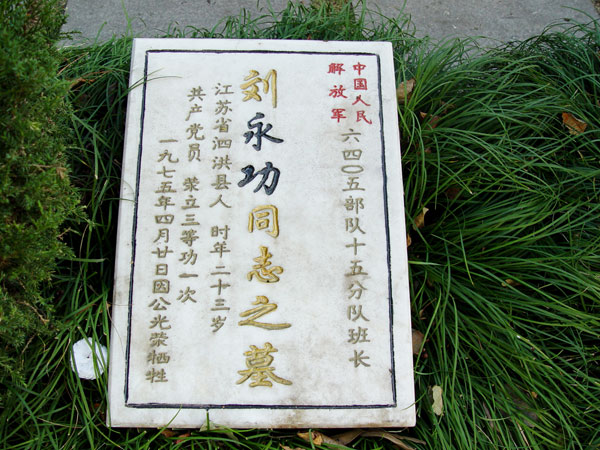 中国人民
解放军
六四〇五部队十五分队班长
刘永功同志之墓
江苏省泗洪县人 时年二十三岁
共产党员 荣立三等功一次
一九七五年四月廿日因公光荣牺牲